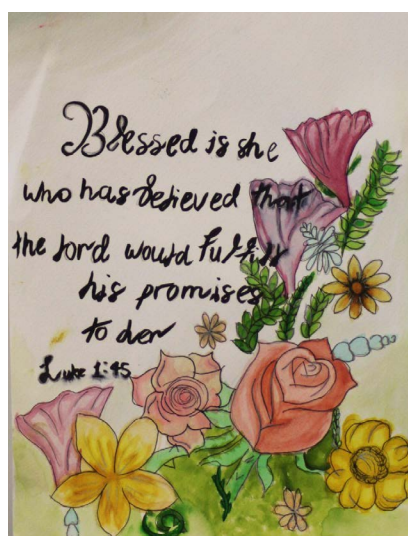 Blessed is she
who has believed that
the Lord would fulfill
his promises
to her
Luke 1:45